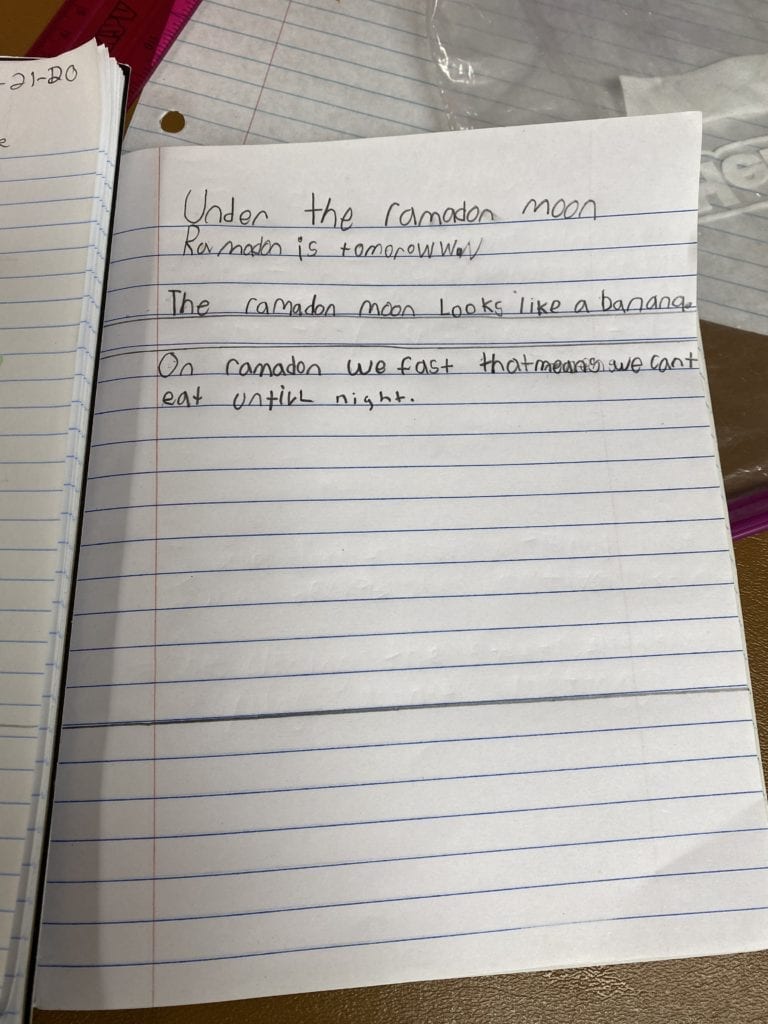 -21-20
e
Under the ramadon moon
Ramadon is tomorowwW
The ramadon moon Looks like a banana.
On ramadon we fast that means we cant
eat untill night.